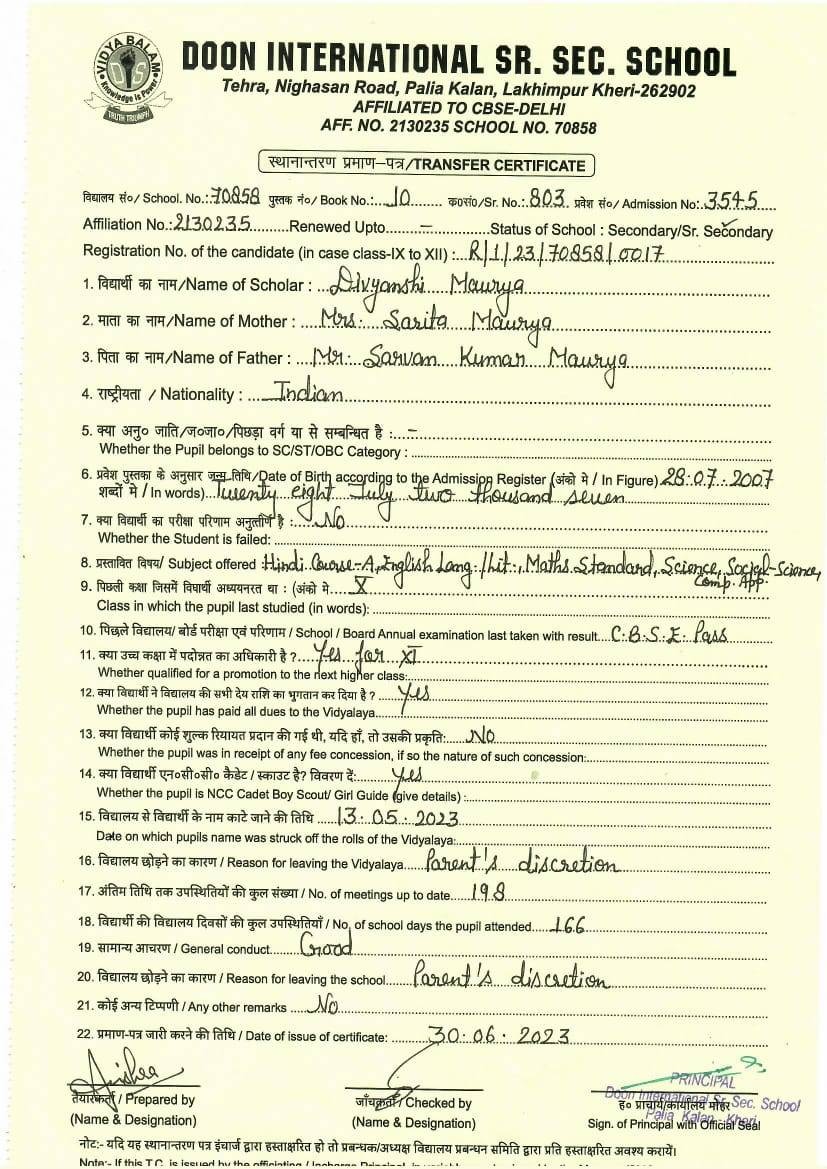 VIDYA BALAM
DIS
Knowledge is Power
TRUTH TRIUMPH
DOON INTERNATIONAL SR. SEC. SCHOOL
Tehra, Nighasan Road, Palia Kalan, Lakhimpur Kheri-262902
AFFILIATED TO CBSE-DELHI
AFF. NO. 2130235 SCHOOL NO. 70858
स्थानान्तरण प्रमाण–पत्र/TRANSFER CERTIFICATE
विद्यालय सं०/ School. No.:.70858 पुस्तक नं०/ Book No.:....10........ क०सं०/Sr. No.:.803. प्रवेश सं०/ Admission No:.3545.....
Affiliation No.:2130235.........Renewed Upto.......–..............Status of School : Secondary/Sr. Secondary
Registration No. of the candidate (in case class-IX to XII) :...R/1/23/70858/0017
1. विद्यार्थी का नाम/Name of Scholar : ...Divyanshi Maurya
2. माता का नाम/Name of Mother : ....Mrs. Sarita Maurya
3. पिता का नाम/Name of Father : ....Mr. Sarvan Kumar Maurya
4. राष्ट्रीयता / Nationality : ....Indian
5. क्या अनु० जाति/ज०जा०/पिछड़ा वर्ग या से सम्बन्धित है :...–
Whether the Pupil belongs to SC/ST/OBC Category :
6. प्रवेश पुस्तिका के अनुसार जन्म तिथि/Date of Birth according to the Admission Register (अंको मे / In Figure) 28.07.2007
शब्दों मे / In words)..Twenty eight July two thousand seven
7. क्या विद्यार्थी का परीक्षा परिणाम अनुत्तीर्ण है :....No
Whether the Student is failed:
8. प्रस्तावित विषय/ Subject offered Hindi Course-A, English Lang./Lit., Maths Standard, Science, Social-Science,
Comp. App.
9. पिछली कक्षा जिसमें विद्यार्थी अध्ययनरत था : (अंको मे....X
Class in which the pupil last studied (in words):
10. पिछले विद्यालय/ बोर्ड परीक्षा एवं परिणाम / School / Board Annual examination last taken with result....C.B.S.E. Pass
11. क्या उच्च कक्षा में पदोन्नत का अधिकारी है ?....Yes for XI
Whether qualified for a promotion to the next higher class:
12. क्या विद्यार्थी ने विद्यालय की सभी देय राशि का भुगतान कर दिया है ? .....Yes
Whether the pupil has paid all dues to the Vidyalaya
13. क्या विद्यार्थी कोई शुल्क रियायत प्रदान की गई थी, यदि हाँ, तो उसकी प्रकृति:......No
Whether the pupil was in receipt of any fee concession, if so the nature of such concession:
14. क्या विद्यार्थी एन०सी०सी० कैडेट / स्काउट है? विवरण दें:........Yes
Whether the pupil is NCC Cadet Boy Scout/ Girl Guide (give details) :
15. विद्यालय से विद्यार्थी के नाम काटे जाने की तिथि .....13.05.2023
Date on which pupils name was struck off the rolls of the Vidyalaya:
16. विद्यालय छोड़ने का कारण / Reason for leaving the Vidyalaya.....Parent's discretion
17. अंतिम तिथि तक उपस्थितियों की कुल संख्या / No. of meetings up to date.....198
18. विद्यार्थी की विद्यालय दिवसों की कुल उपस्थितियाँ / No. of school days the pupil attended.....166
19. सामान्य आचरण / General conduct.......Good
20. विद्यालय छोड़ने का कारण / Reason for leaving the school.......Parent's discretion
21. कोई अन्य टिप्पणी / Any other remarks .....No
22. प्रमाण-पत्र जारी करने की तिथि / Date of issue of certificate: .........30.06.2023
PRINCIPAL
Doon International Sr. Sec. School
Palia Kalan, Kheri
तैयारकर्ता / Prepared by जाँचकर्ता / Checked by ह० प्राचार्य/कार्यालय मोहर
(Name & Designation) (Name & Designation) Sign. of Principal with Official Seal
नोट:- यदि यह स्थानान्तरण पत्र इंचार्ज द्वारा हस्ताक्षरित हो तो प्रबन्धक/अध्यक्ष विद्यालय प्रबन्धन समिति द्वारा प्रति हस्ताक्षरित अवश्य करायें।
Note:- If this T.C. is issued by the officiating / Incharge Principal,